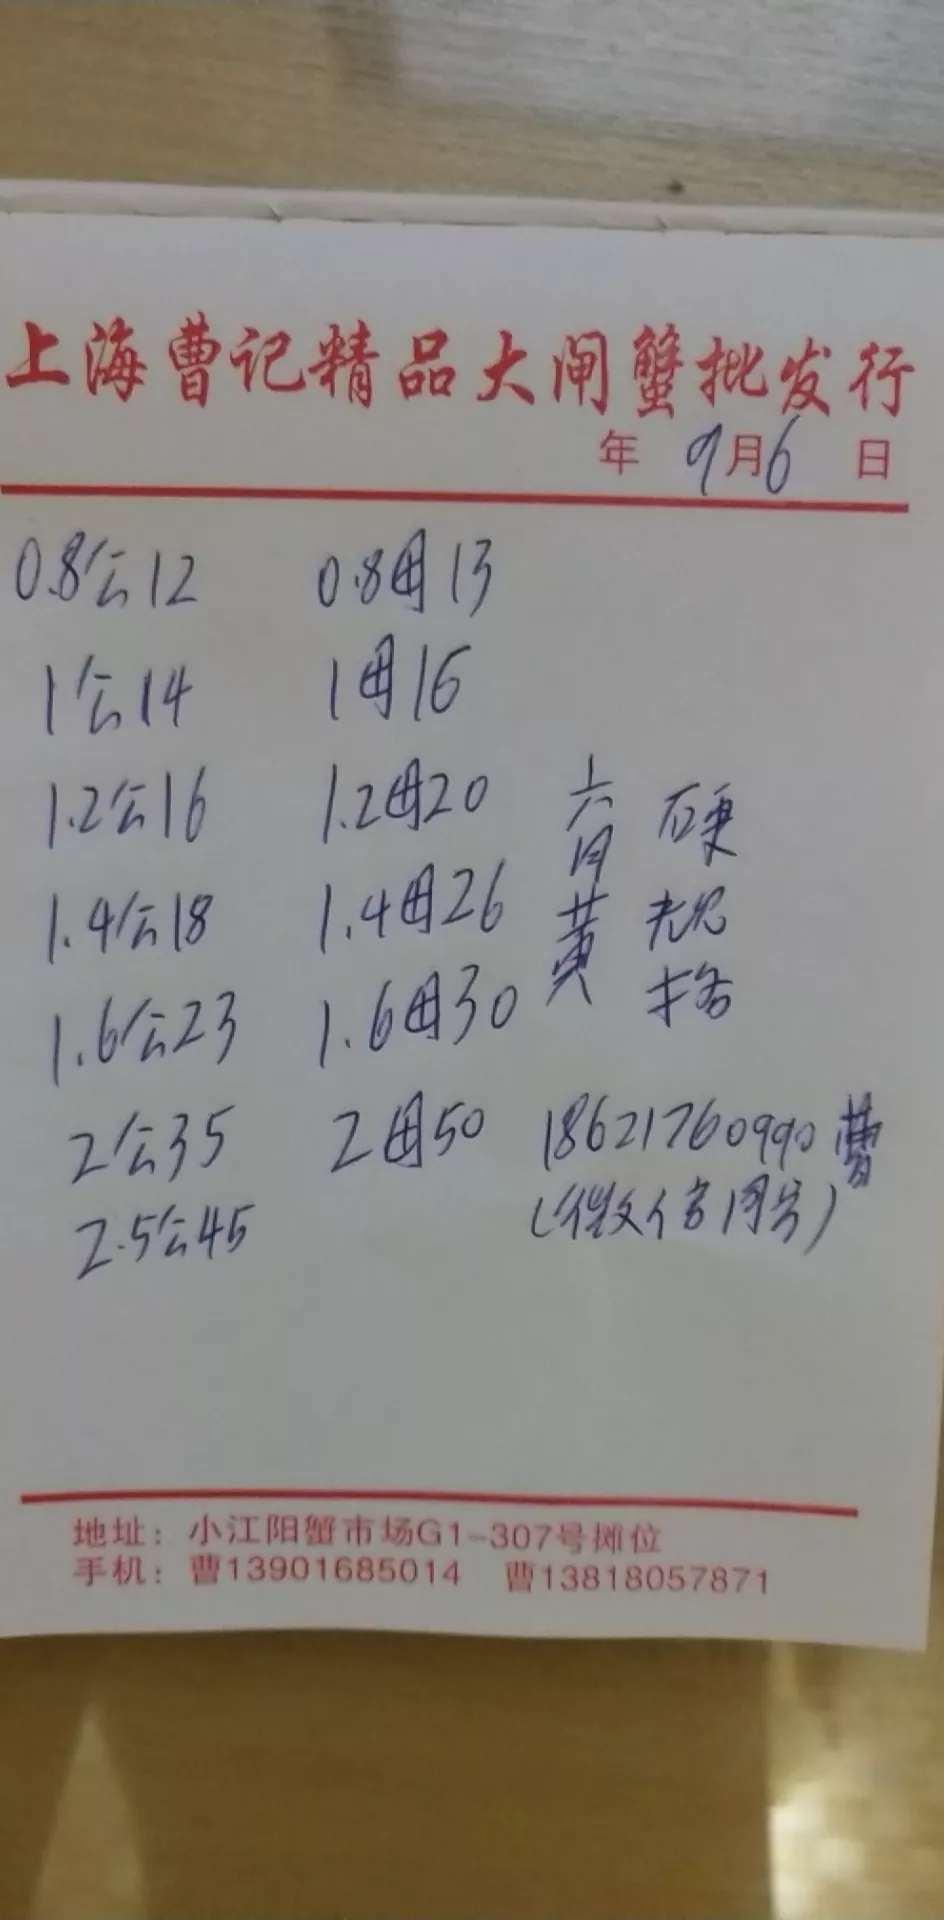 上海曹记精品大闸蟹批发行
年 9月6 日
0.8公12 0.8母13
1公14 1母16
1.2公16 1.2母20
1.4公18 1.4母26
1.6公23 1.6母30
2公35 2母50
2.5公45
六月黄
硬规格
18621760990曹
(微信同号)
地址：小江阳蟹市场G1-307号摊位
手机：曹13901685014 曹13818057871